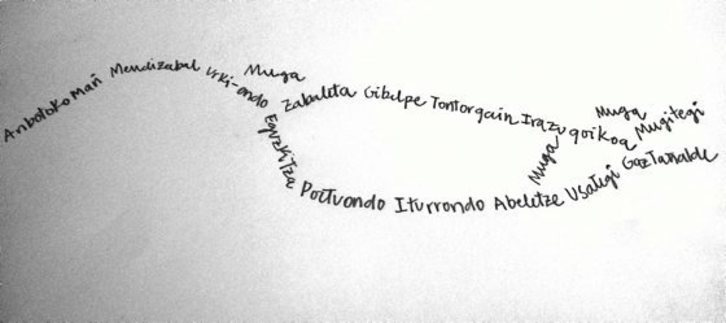 Anbotoko Mari Mendizabal Urki-ondo
Muga
Zabaleta Gibelpe Tontorgain Irazu goikoa
Muga
Mugitegi
Eguzkitza
Portuondo Iturrondo Abeletze Usategi Gaztanalde
Muga